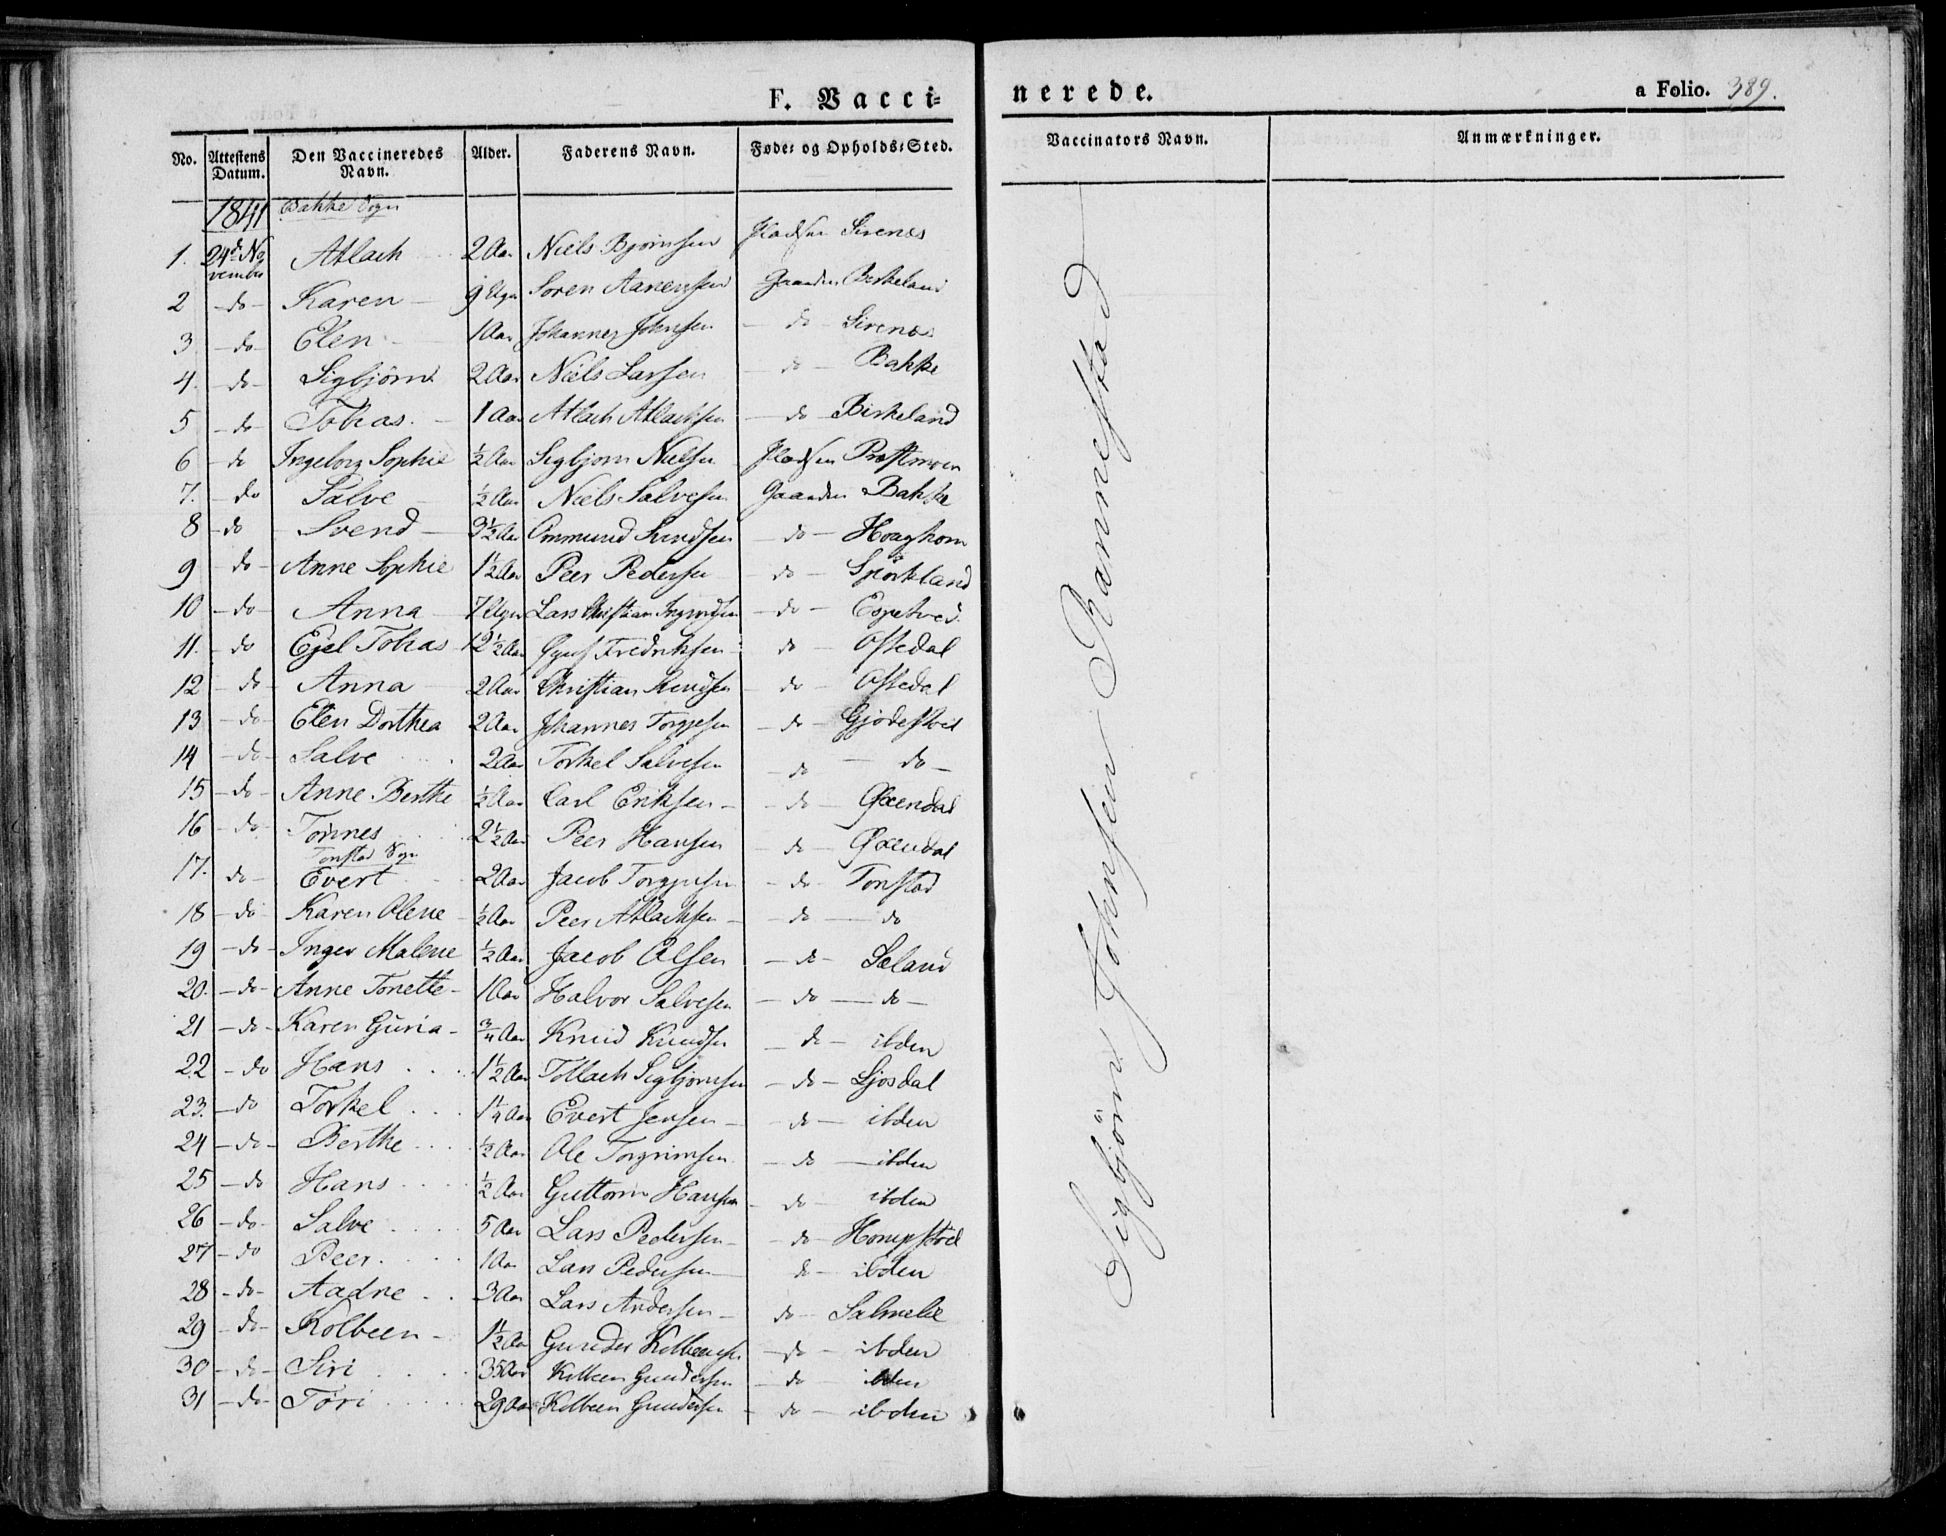 F. Vaccinerede. a Folio. 389.
No. Attestens Datum. Den Vaccineredes Navn. Alder. Faderens Navn. Føde= og Opholds=Sted. Vaccinators Navn. Anmærkninger.
1841 Bakke Sogn
1. 24de November Atlach 2 Aar Niels Bjørnsen Pladsen Sirenæs
2 -do- Karen 9 Uger Soren Aanensen Gaarden Birkeland
3 -do- Elen 1 Aar Johannes Johnsen -do- Sirenæs
4. -do- Sigbjørn 2 Aar Niels Larsen -do- Bakke
5 -do- Tobias. 1 Aar Atlach Atlachsen -do- Birkeland
6 -do Ingeborg Sophie ½ Aar Sigbjorn Nielsen Pladsen Præstmoen
7. -do Salve ½ Aar Niels Salvesen Gaarden Bakke
8 -do Svend 3½ Aar Ommund Knudsen -do-
9 do- Anne Sophie 1½ Aar Peer Pedersen do-
10 -do- Anna 7 Uger Lars Christian -do- Espetved
11. -do Ejel Tobias 12½ Aar Fredriksen do Oftedal
12 -do- Anna 2 Aar Christian Knudsen -do- Oftedal
13 -do Elen Dorthea 2 Aar Johannes Torgjesen -do- Gjødestvel
14 -do- Salve 2 Aar Torkel Salvesen -do - do-
15 -do- Anne Berthe ½ Aar Carl Eriksen -do- Øxendal
16 -do- Tonnes 2½ Aar Peer Hansen -do- Øxendal
Tonstad Sogn
17. do- Evert 2 Aar Jacob Torgjusen -do- Tonstad
18 -do- Karen Olene ½ Aar Peer Atlachsen -do - do
19 -do- Inger Malene ½ Aar Jacob Olsen -do- Seland
20. -do- Anne Tonette- 1 Aar Halvor Salvesen -do - do-
21 -do- Karen Guria- ¾ Aar Knud Knudsen -do- ibden
22 -do Hans 1½ Aar Tollach Sigbjornsen -do- Ljosdal
23. -do Torkel 1¼ Aar Evert Jensen -do- ibden
24 -do- Berthe ½ Aar Ole Torgrimsen -do- ibden
25 -do Hans ½ Aar Guttorm Hansen -do- ibden
26 -do- Salve 5 Aar Lars Pedersen- -do- Hompstvel
27 -do Peer. 1 Aar Lars Pedersen do- ibden
28 -do- Aadne 3 Aar Lars Andersen- do- Salmelie
29 -do- Kolbeen- 1½ Aar Gunder Kolbeensen -do- ibden
30 -do- Siri 35 Aar Kolbeen Gundersen -do- ibden
31 -do- Tori 29 Aar Kolbeen Gundersen -do- ibden
Sigbjörn Johnsen Rannestad